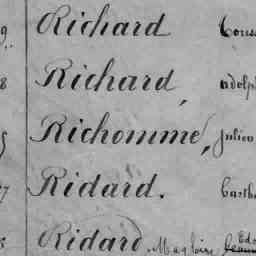 9. Richard
8 Richard, adolph
Richomme, Julien
7 Ridard.
Ridard. Magloire